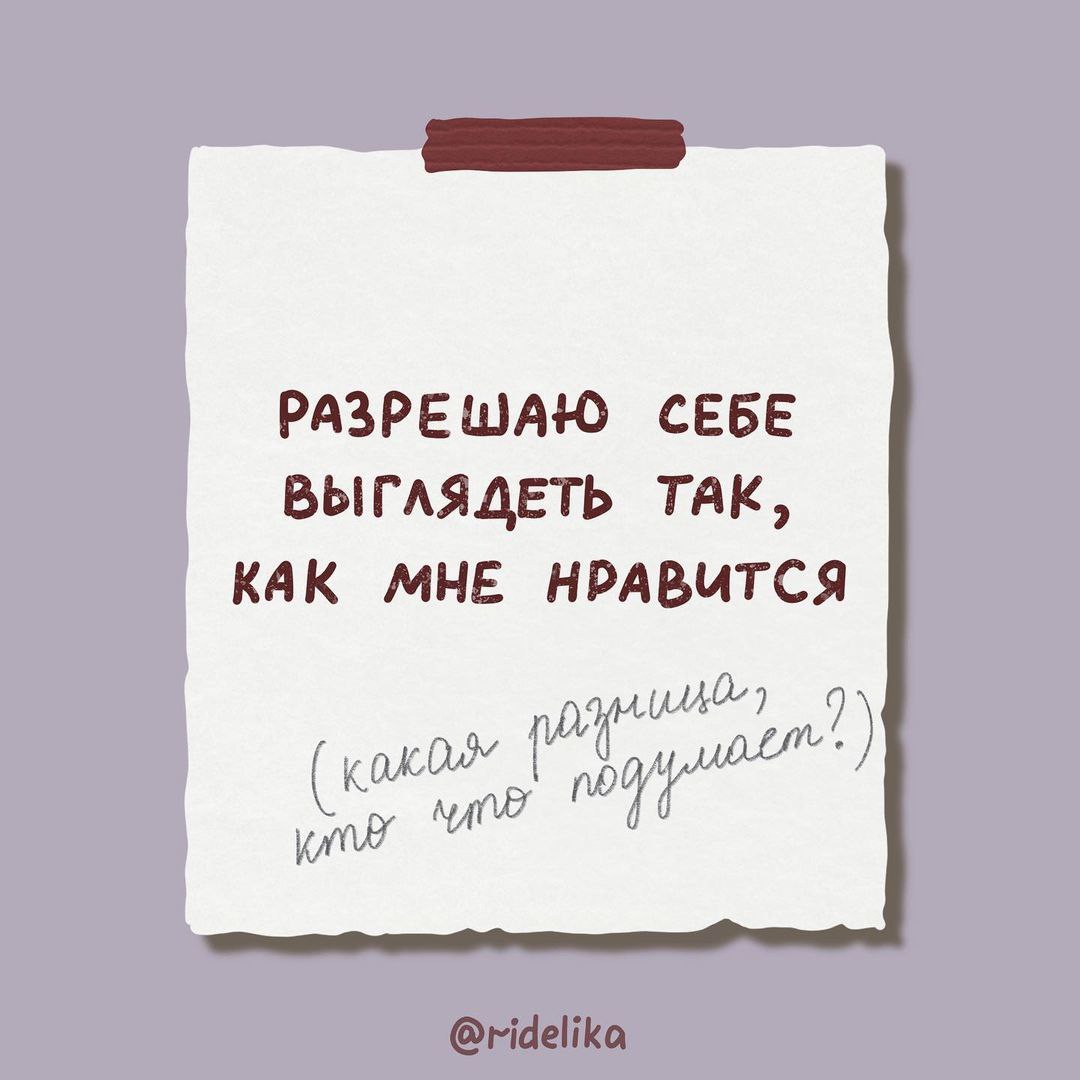 РАЗРЕШАЮ СЕБЕ
ВЫГЛЯДЕТЬ ТАК,
КАК МНЕ НРАВИТСЯ
(какая разница,
кто что подумает?)
@ridelika